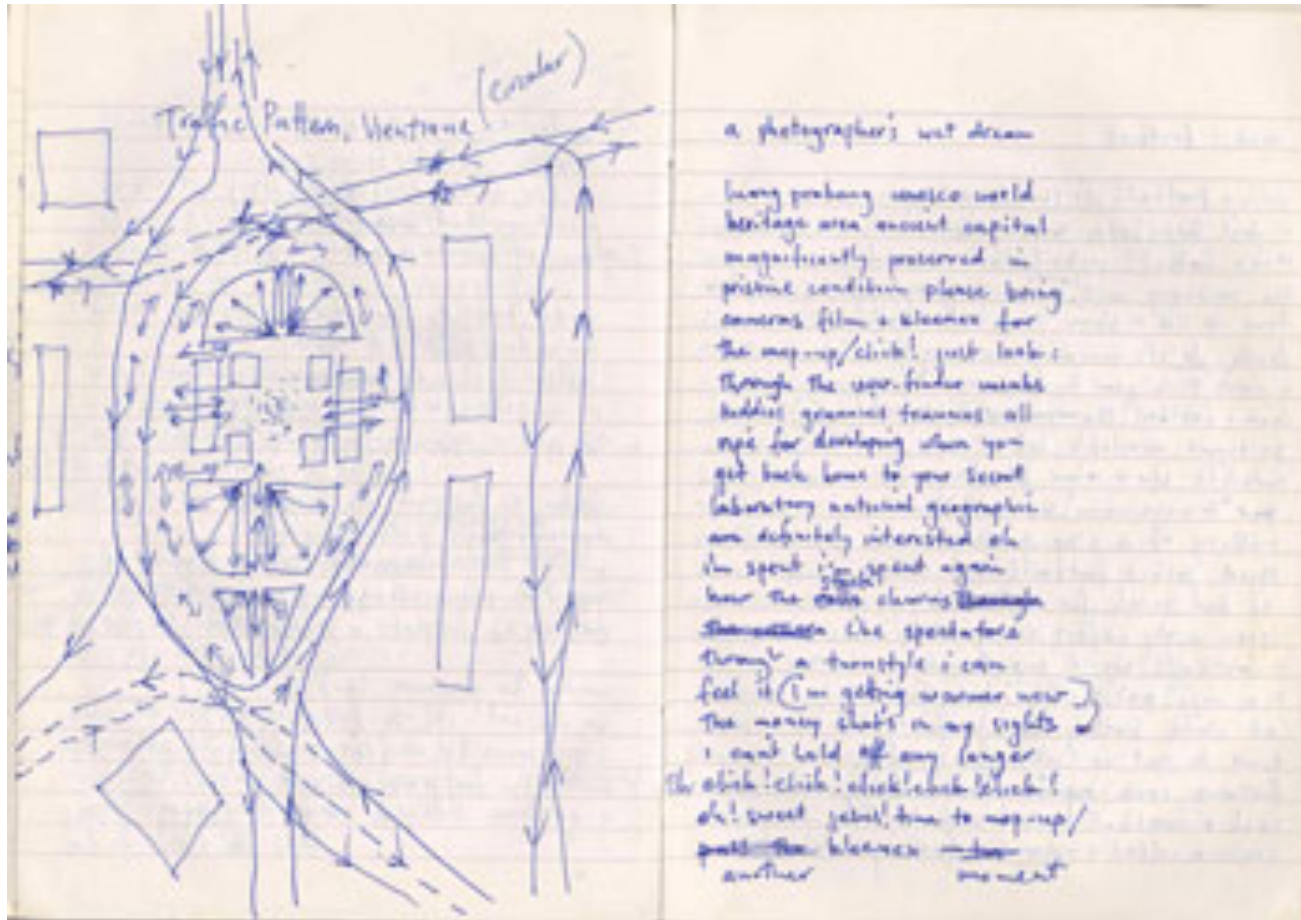 Traffic Pattern, Vientiane (circular)
a photographer's wet dream
luang prabang unesco world
heritage area ancient capital
magnificently preserved in
pristine condition please bring
cameras film + kleenex for
the mop-up/click! just look
through the view-finder
grannies trannies all
ripe for developing when you
get back home to your secret
laboratory national geographic
are definitely interested oh
i'm spent i'm spent again
hear the
like spectators
through a turnstyle i can
feel it (I'm getting warmer now)
the money shot's in my sights
i can't hold off any longer
click! click! click! click! click!
oh! sweet jesus! time to mop-up/
kleenex
another moment